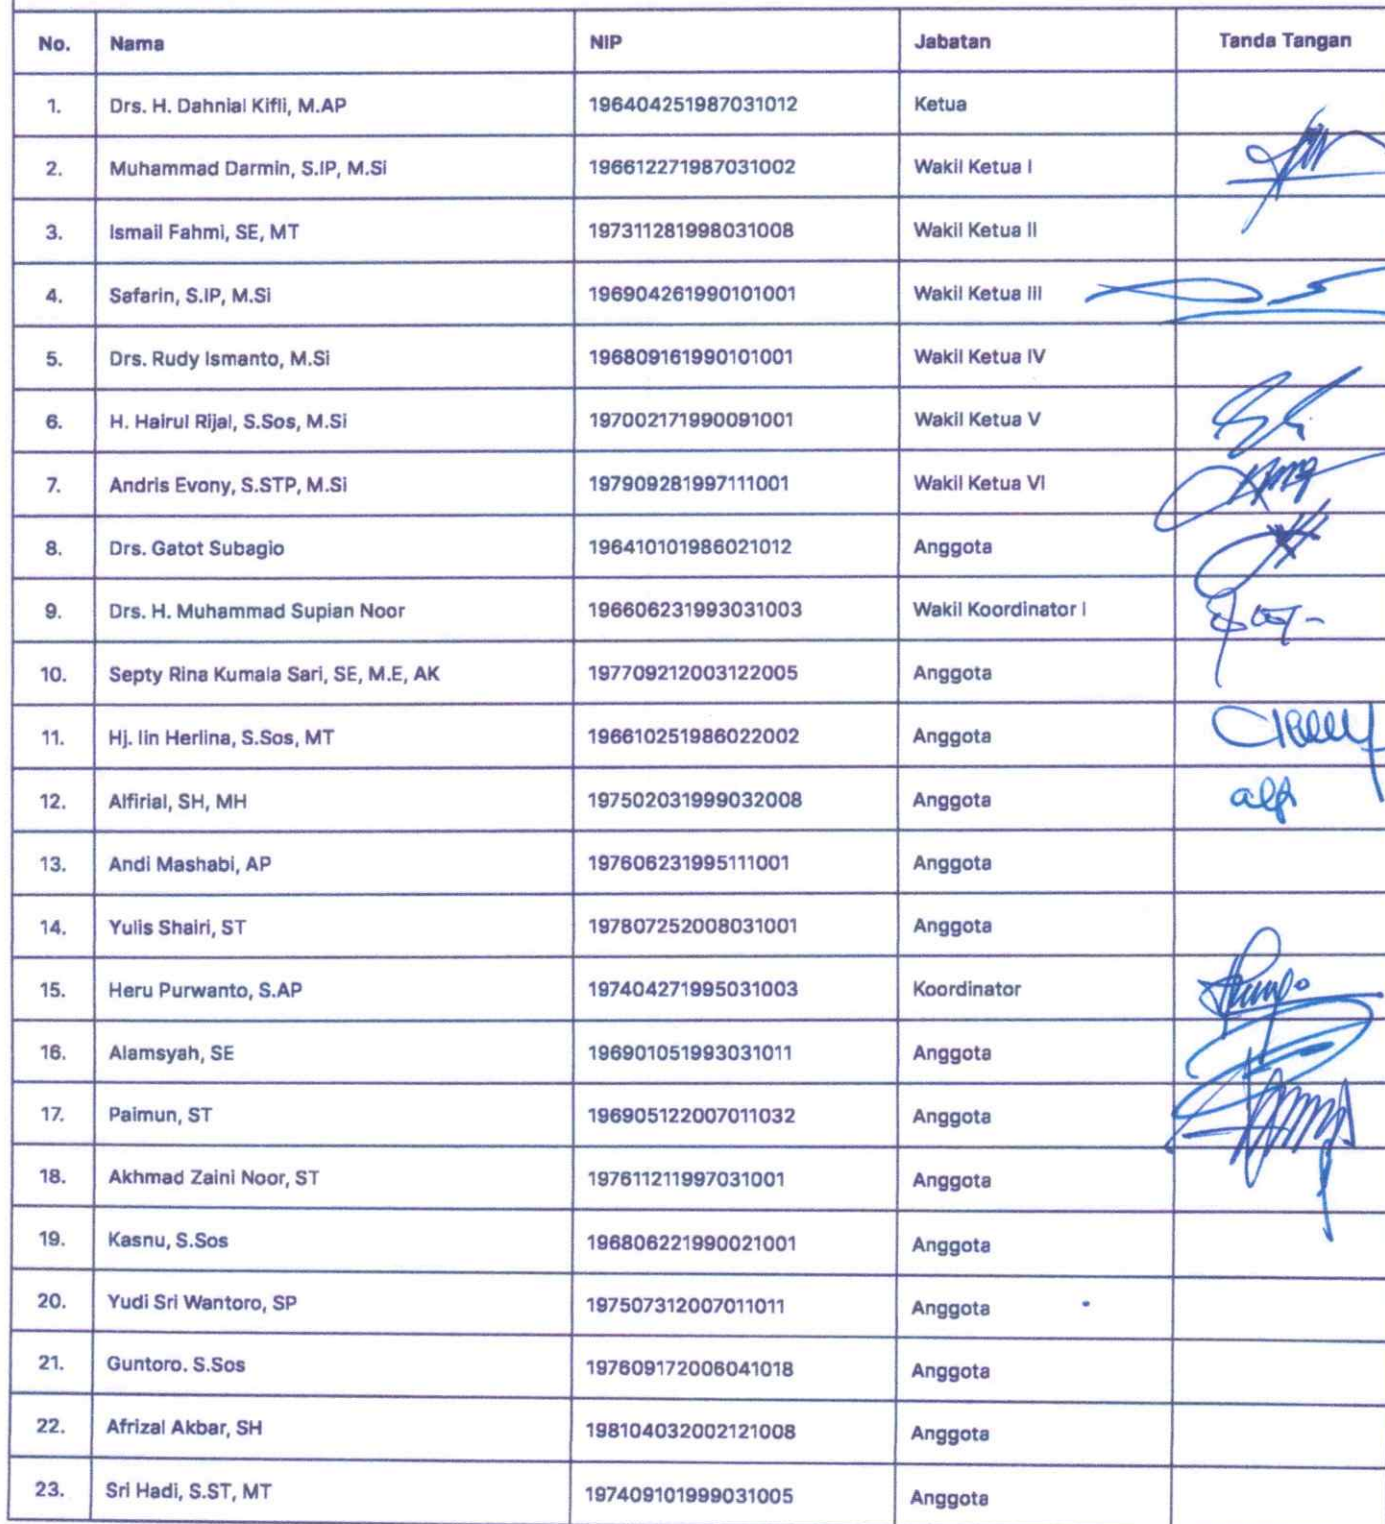 No. Nama NIP Jabatan Tanda Tangan
1. Drs. H. Dahnial Kifli, M.AP 196404251987031012 Ketua
2. Muhammad Darmin, S.IP, M.Si 196612271987031002 Wakil Ketua I
3. Ismail Fahmi, SE, MT 197311281998031008 Wakil Ketua II
4. Safarin, S.IP, M.Si 196904261990101001 Wakil Ketua III
5. Drs. Rudy Ismanto, M.Si 196809161990101001 Wakil Ketua IV
6. H. Hairul Rijal, S.Sos, M.Si 197002171990091001 Wakil Ketua V
7. Andris Evony, S.STP, M.Si 197909281997111001 Wakil Ketua VI
8. Drs. Gatot Subagio 196410101986021012 Anggota
9. Drs. H. Muhammad Supian Noor 196606231993031003 Wakil Koordinator I
10. Septy Rina Kumala Sari, SE, M.E, AK 197709212003122005 Anggota
11. Hj. Iin Herlina, S.Sos, MT 196610251986022002 Anggota
12. Alfirial, SH, MH 197502031999032008 Anggota
13. Andi Mashabi, AP 197606231995111001 Anggota
14. Yulis Shairi, ST 197807252008031001 Anggota
15. Heru Purwanto, S.AP 197404271995031003 Koordinator
16. Alamsyah, SE 196901051993031011 Anggota
17. Paimun, ST 196905122007011032 Anggota
18. Akhmad Zaini Noor, ST 197611211997031001 Anggota
19. Kasnu, S.Sos 196806221990021001 Anggota
20. Yudi Sri Wantoro, SP 197507312007011011 Anggota
21. Guntoro. S.Sos 197609172006041018 Anggota
22. Afrizal Akbar, SH 198104032002121008 Anggota
23. Sri Hadi, S.ST, MT 197409101999031005 Anggota